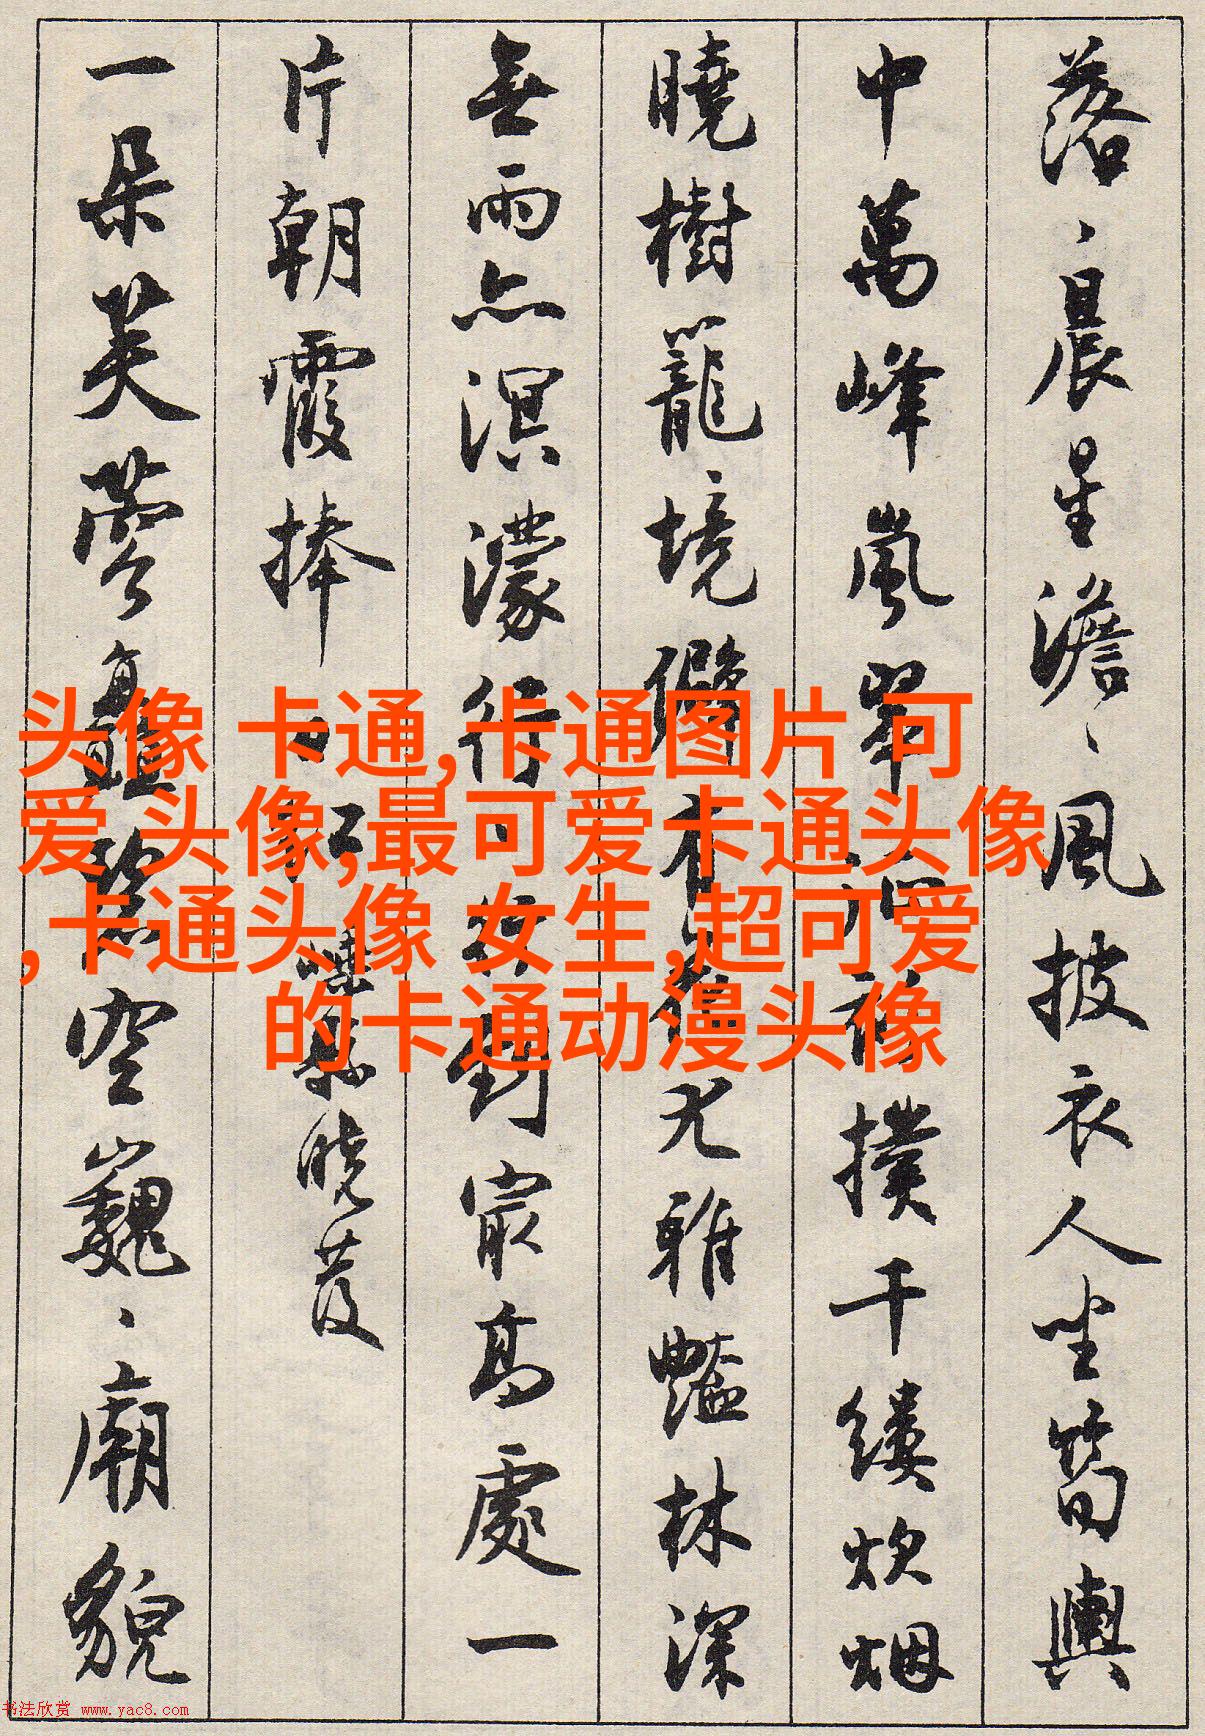 落、晨星澹、風披衣人坐筍輿
中萬峰嵐翠
撲千縷炊烟
曉樹籠、境僻
尤雅豔林深
無雨亦溟濛行、
最高處一
片朝霞捧
曉发
一朵芙蓉矗
空巍、廟貌
头像 卡通,卡通图片 可
爱 头像,最可爱卡通头像
,卡通头像 女生,超可爱
的卡通动漫头像
书法欣赏 www.yac8.com